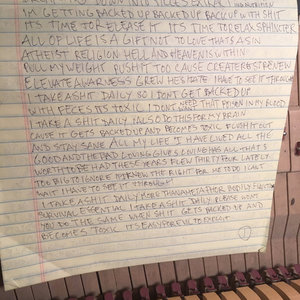 DOWN INTO
I'M GETTING BACKED UP BACKED UP BACK UP WITH SHIT
IT'S TIME TO RELEASE IT IT'S TIME TO RELAX SPHINCTER
ALL OF LIFE IS A GIFT NOT TO LOVE THAT'S A SIN
ATHEIST RELIGION HELL AND HEAVEN IS WITHIN
PULL MY WEIGHT PUSH IT TOO CAUSE CREATE REST RENEW
ELEVATE AWARENESS HE'S I HAVE TO SEE IT THROUGH
I TAKE A SHIT DAILY SO I DON'T GET BACKED UP
WITH FECES IT'S TOXIC I DON'T NEED THAT POISON IN MY BLOOD
I TAKE A SHIT DAILY I ALSO DO THIS FOR MY BRAIN
CAUSE IT GETS BACKED UP AND BECOMES TOXIC FLUSH IT OUT
AND STAY SANE ALL MY LIFE I HAVE LOVED ALL THE
GOOD AND THE BAD LOVING GIVES LOVING HAS ALL THAT'S
WORTH TO BE HAD THESE WORDS FLEW THIRTY FOUR LATELY
TO BUSY IGNORE KNEW THE RIGHT FOR ME TO DO I CAN'T
WAIT I HAVE TO SEE IT THROUGH
I TAKE A SHIT DAILY MORE THAN A METAPHOR BODILY FUNCTION
SURVIVAL ESSENTIAL I TAKE A SHIT DAILY PLEASE WON'T
YOU DO THE SAME WHEN SHIT GETS BACKED UP AND
BECOMES TOXIC IT'S EASY FOR EVIL TO EXPLOIT
1